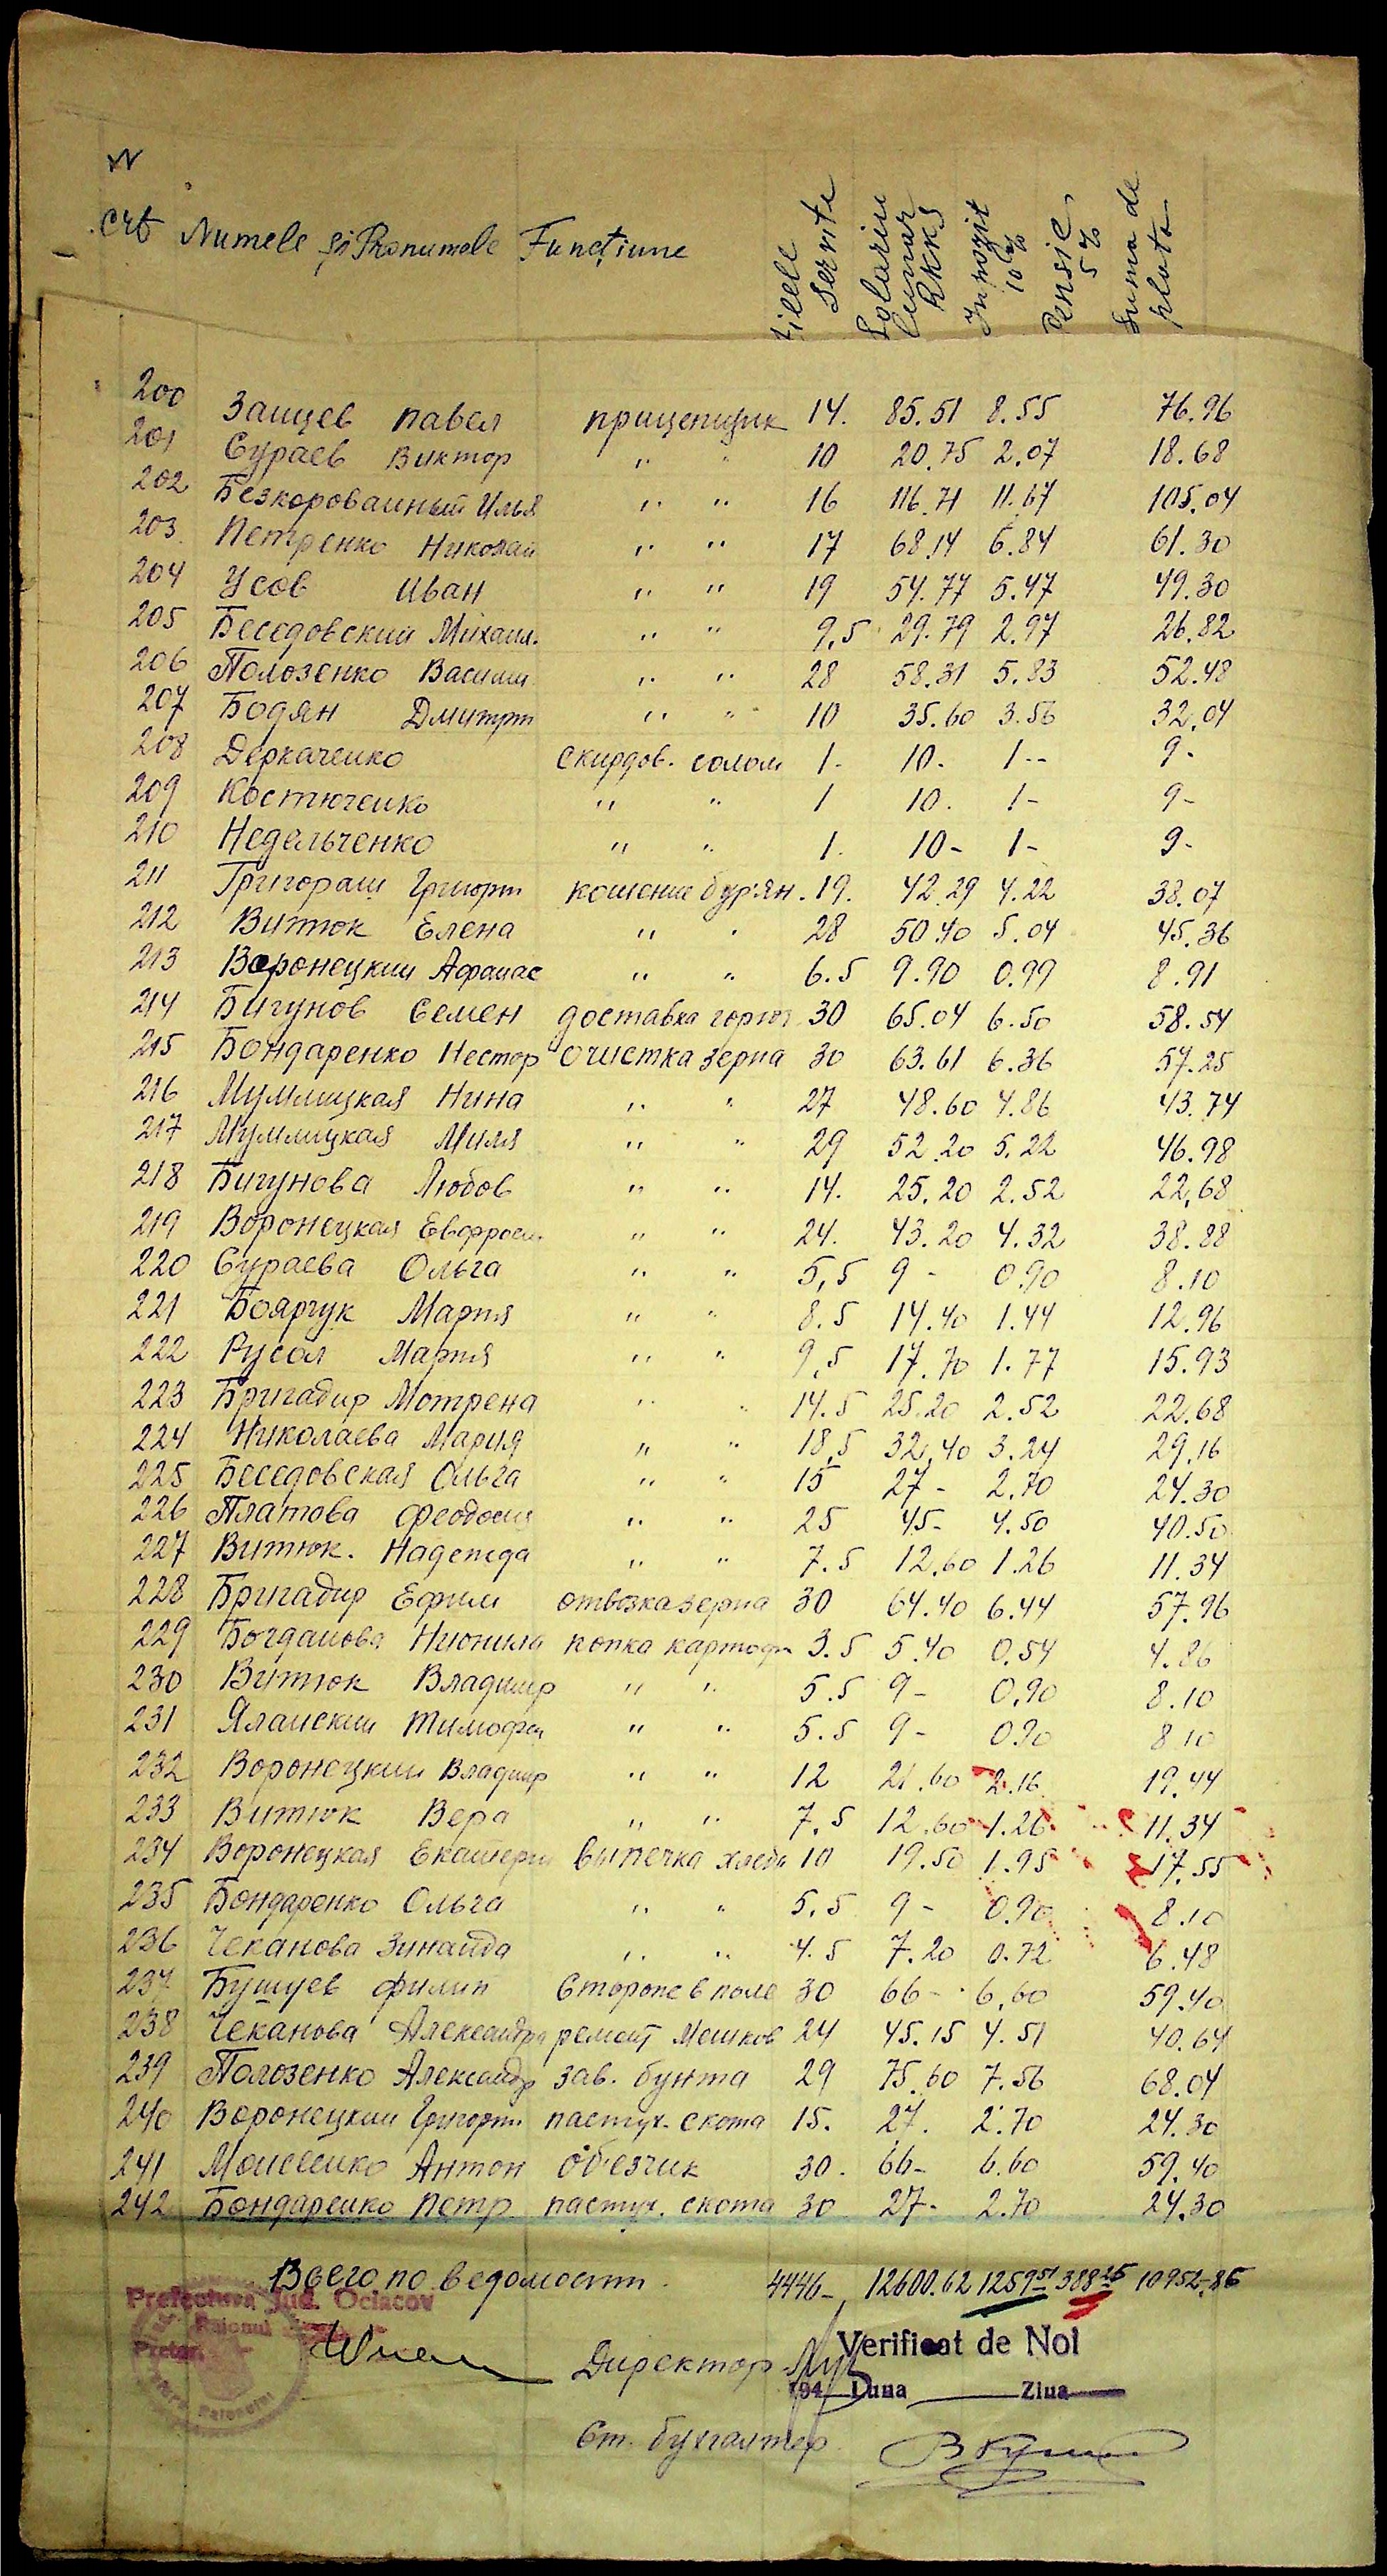 N
crt Numele și Pronumele Funcțiune Zilele Servite Solariu lunar RKKS Impozit 10% Pensie 5% Suma de plata
200 Зайцев Павел прицепщик 14. 85.51 8.55 76.96
201 Сураев Виктор " " 10 20.75 2.07 18.68
202 Безкоровайный Илья " " 16 116.71 11.67 105.04
203 Петренко Николай " " 17 68.14 6.84 61.30
204 Усов Иван " " 19 54.77 5.47 49.30
205 Беседовский Михаил. " " 9,5 29.79 2.97 26.82
206 Полозенко Василий " " 28 58.31 5.83 52.48
207 Бодян Дмитрий " " 10 35.60 3.56 32.04
208 Деркаченко скирдов. солом 1. 10. 1-- 9-
209 Костюченко " " 1 10. 1- 9-
210 Недельченко " " 1. 10- 1- 9-
211 Григораш Григорий кошение бур'ян. 19. 42.29 4.22 38.07
212 Витюк Елена " " 28 50.40 5.04 45.36
213 Воронецкий Афанас " " 6.5 9.90 0.99 8.91
214 Бигунов Семен доставка горюч 30 65.04 6.50 58.54
215 Бондаренко Нестор очистка зерна 30 63.61 6.36 57.25
216 Мумлицкая Нина " " 27 48.60 4.86 43.74
217 Мумлицкая Миля " " 29 52.20 5.22 46.98
218 Бигунова Любов " " 14. 25.20 2.52 22,68
219 Воронецкая Евфроси. " " 24. 43.20 4.32 38.88
220 Сураева Ольга " " 5,5 9- 0.90 8.10
221 Боярчук Мария " " 8.5 14.40 1.44 12.96
222 Русол Мария " " 9,5 17.70 1.77 15.93
223 Бригадир Мотрена " " 14.5 25.20 2.52 22.68
224 Николаева Мария " " 18,5 32.40 3.24 29.16
225 Беседовская Ольга " " 15 27- 2.70 24.30
226 Платова Феодосия " " 25 45- 4.50 40.50
227 Витюк. Надежда " " 7.5 12.60 1.26 11.34
228 Бригадир Ефим отвозка зерна 30 64.40 6.44 57.96
229 Богданова Нионила копка картофи 3.5 5.40 0.54 4.86
230 Витюк Владимир " " 5.5 9- 0.90 8.10
231 Яланский Тимофей " " 5.5 9- 0.90 8.10
232 Воронецкий Владимир " " 12 21.60 2.16 19.44
233 Витюк Вера " " 7,5 12.60 1.26 11.34
234 Воронецкая Екатерин выпечка хлеба 10 19.50 1.95 17.55
235 Бондаренко Ольга " " 5,5 9- 0.90 8.10
236 Чеканова Зинаида " " 4.5 7.20 0.72 6.48
237 Бушуев Филип Сторож в поле 30 66- 6,60 59.40
238 Чеканова Александра ремонт Мешков 24 45.15 4.51 40.64
239 Полозенко Александр зав. бунта 29 75.60 7.56 68.04
240 Воронецкий Григорий пастух. скота 15. 27. 2.70 24.30
241 Моисеенко Антон об'езчик 30. 66- 6.60 59.40
242 Бондаренко Петр пастух. скота 30 27- 2.70 24.30
Всего по ведомости. 4446- 12600.62 1259 51 388 25 10952.86
Prefectura Jud. Ociacov
Raionul
Pretor
Verificat de Noi
Директор
194 Luna Ziua
Ст. бухгалтер